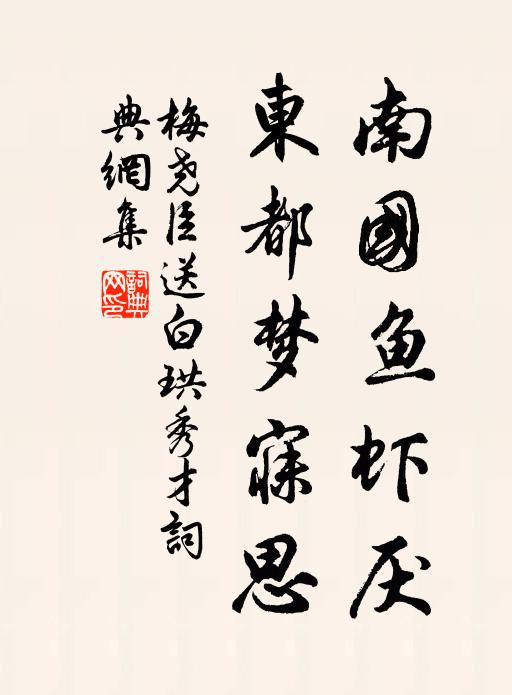 南國鱼虾厌
東都梦寐思
梅尧臣送白珙秀才詞
典網集
詞典网印